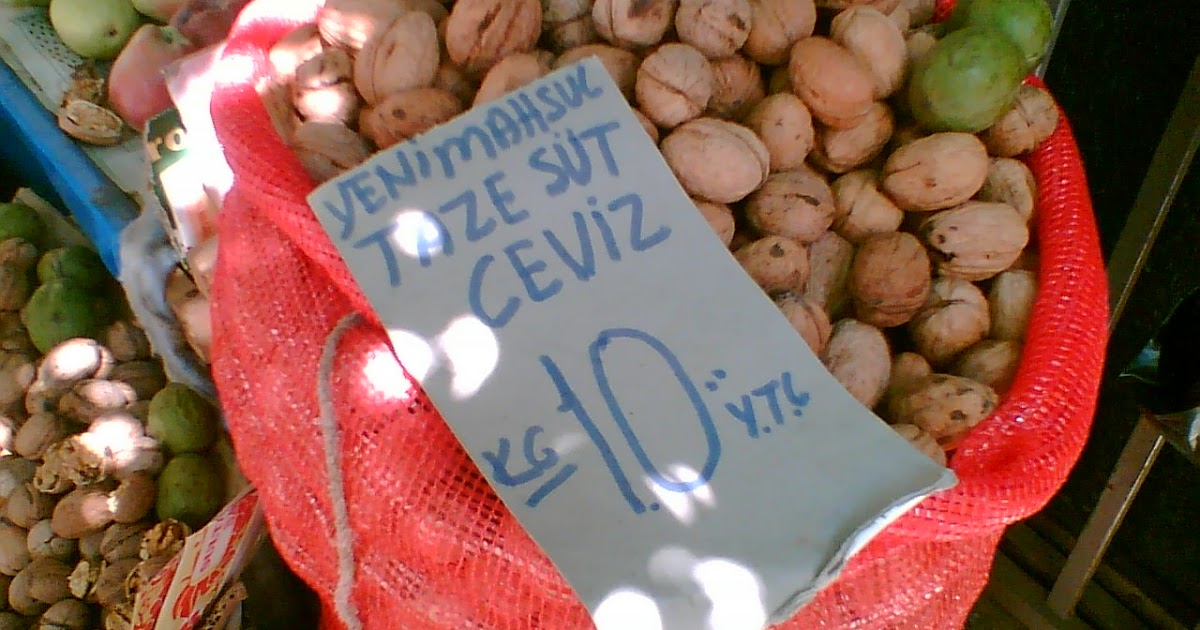 YENİMAHSUL
TAZE SÜT
CEVİZ
KG 10 Y.TL